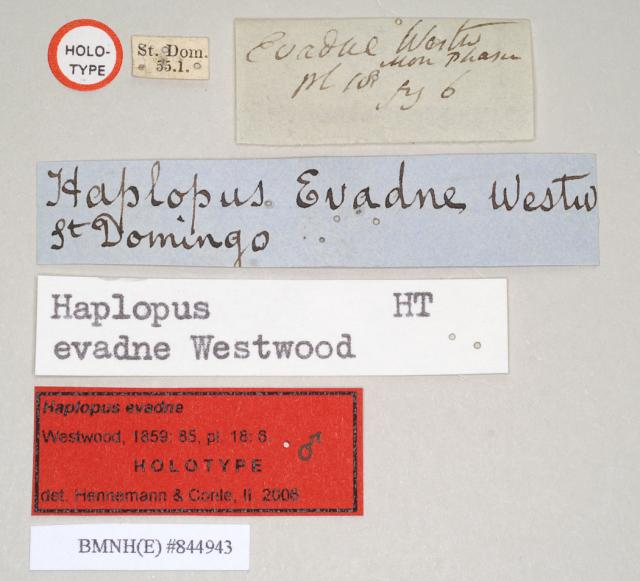 HOLO-
TYPE
St. Dom.
55.1.
Evadne Westw
Mon Phasm
pl 18 fig 6
Haplopus Evadne Westw
St Domingo
Haplopus HT
evadne Westwood
Haplopus evadne
Westwood, 1859: 85, pl. 18: 6. ♂
HOLOTYPE
det. Hennemann & Conle, II. 2008
BMNH(E) #844943